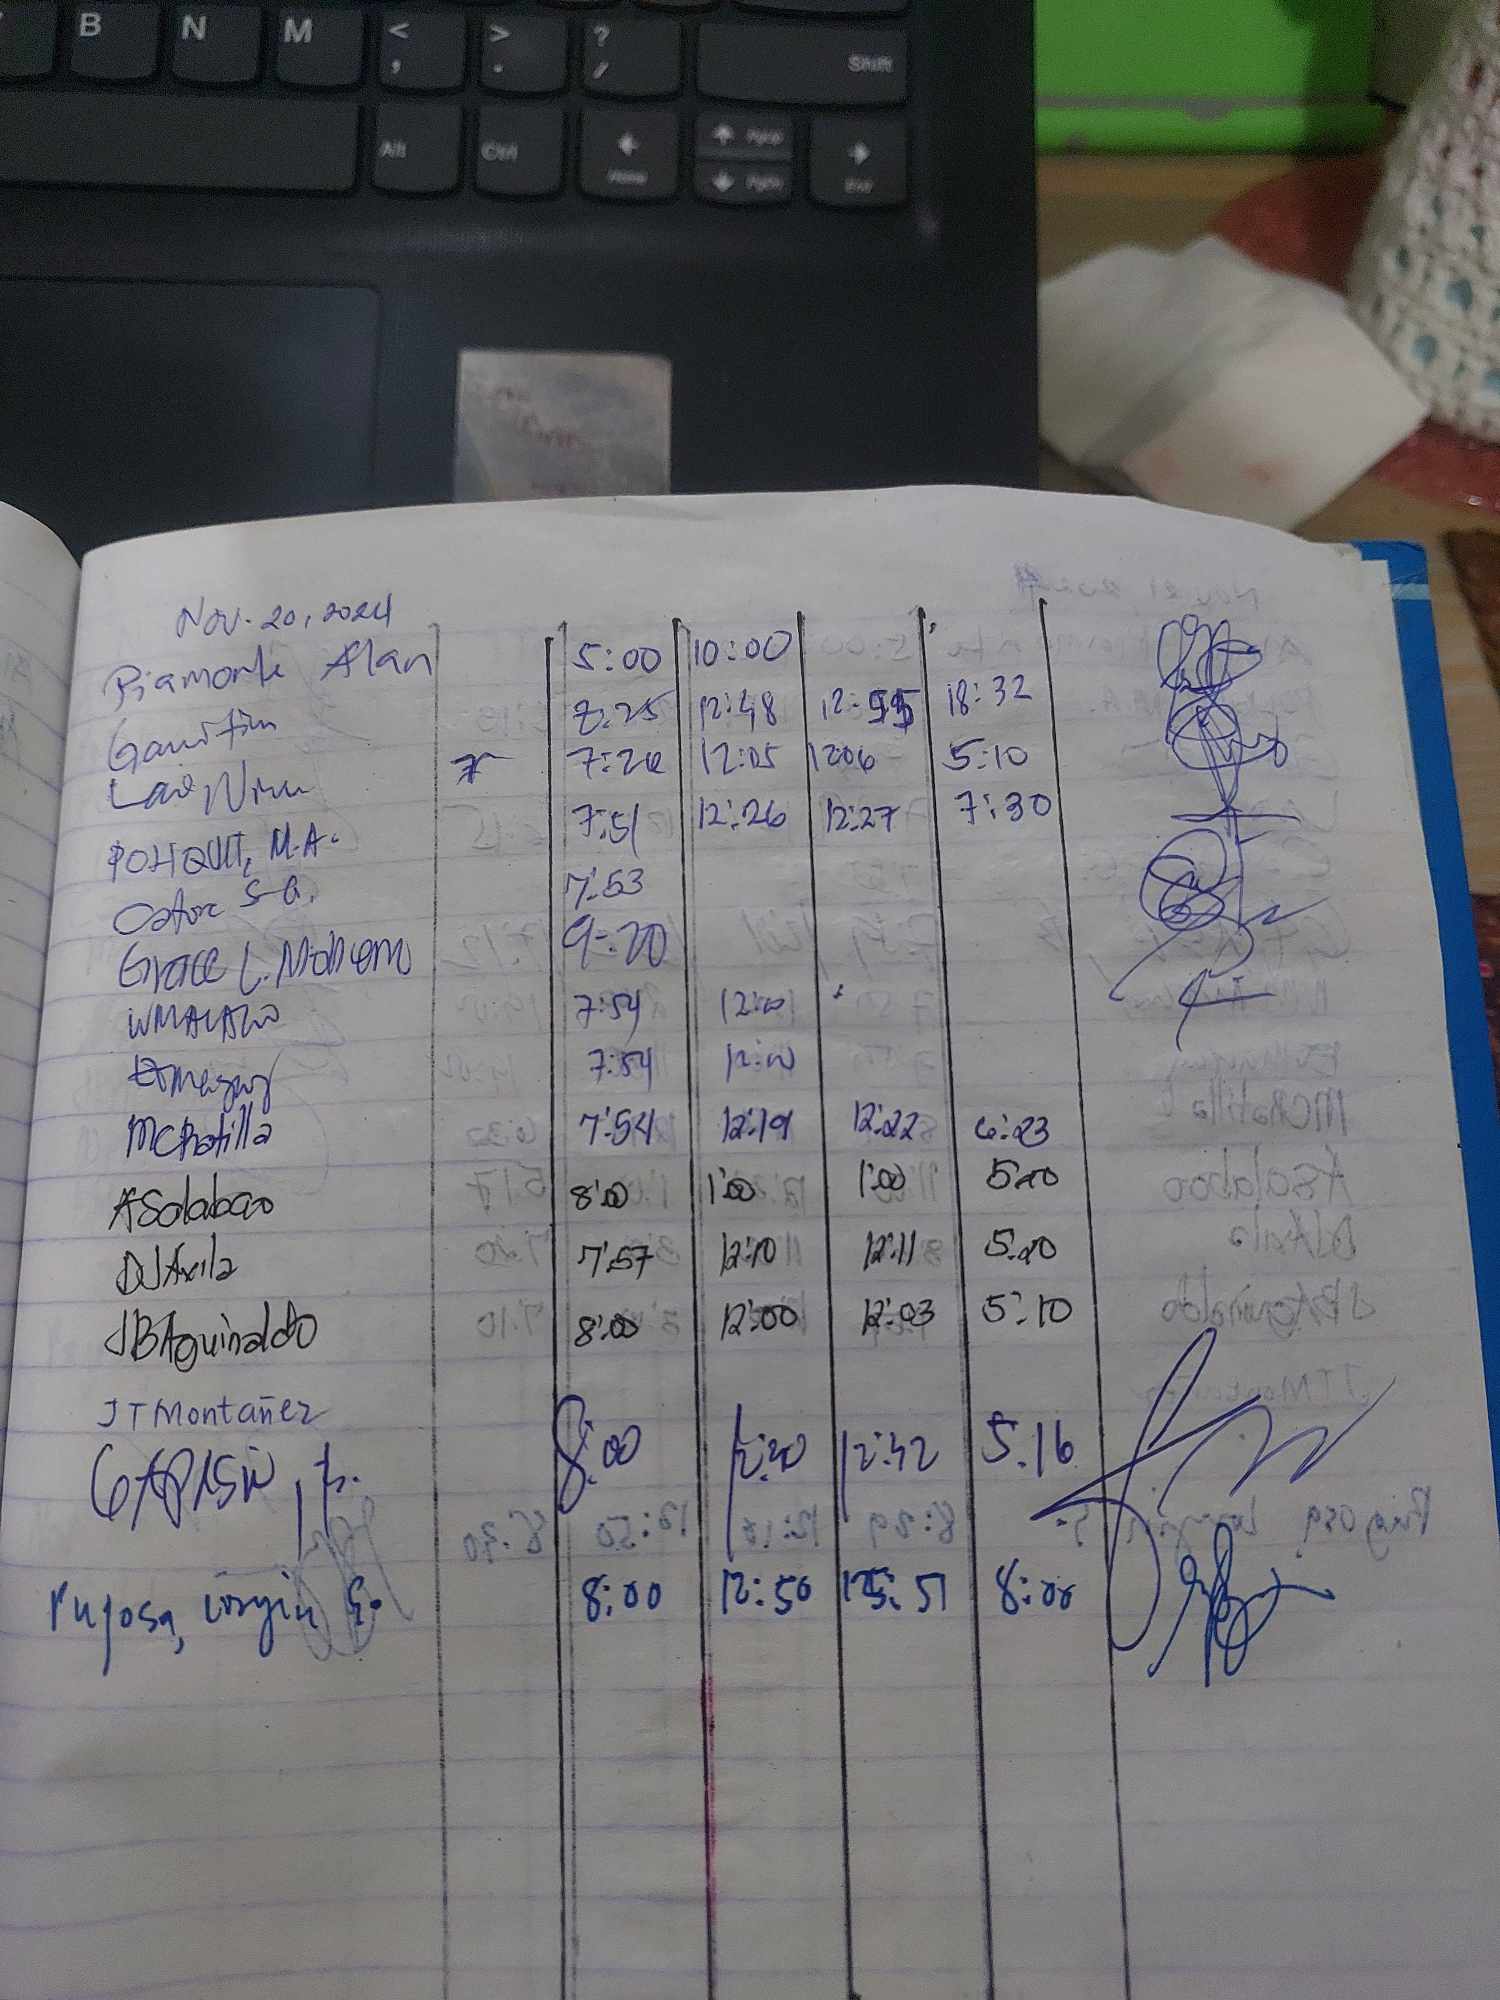 B N M < , > . ? / Shift
Alt Ctrl Home PgUp PgDn End
Nov. 20, 2024
Piamonte Alan 5:00 10:00
8:25 12:48 12:55 18:32
7:20 12:05 1206 5:10
POHQUIT, M.A. 7:51 12:26 12:27 7:30
S.G. 7:53
Grace L. 9:20
7:54 12:00
7:54 12:00
MCRatilla 7:54 12:19 12:22 6:23
ASolabao 8:00 1:00 1:00 5:00
DJAvila 7:57 12:10 12:11 5:20
JBAguinaldo 8:00 12:00 12:03 5:10
JTMontañez
8:00 12:40 12:42 5:16
Pugosa, 8:00 12:50 8:00